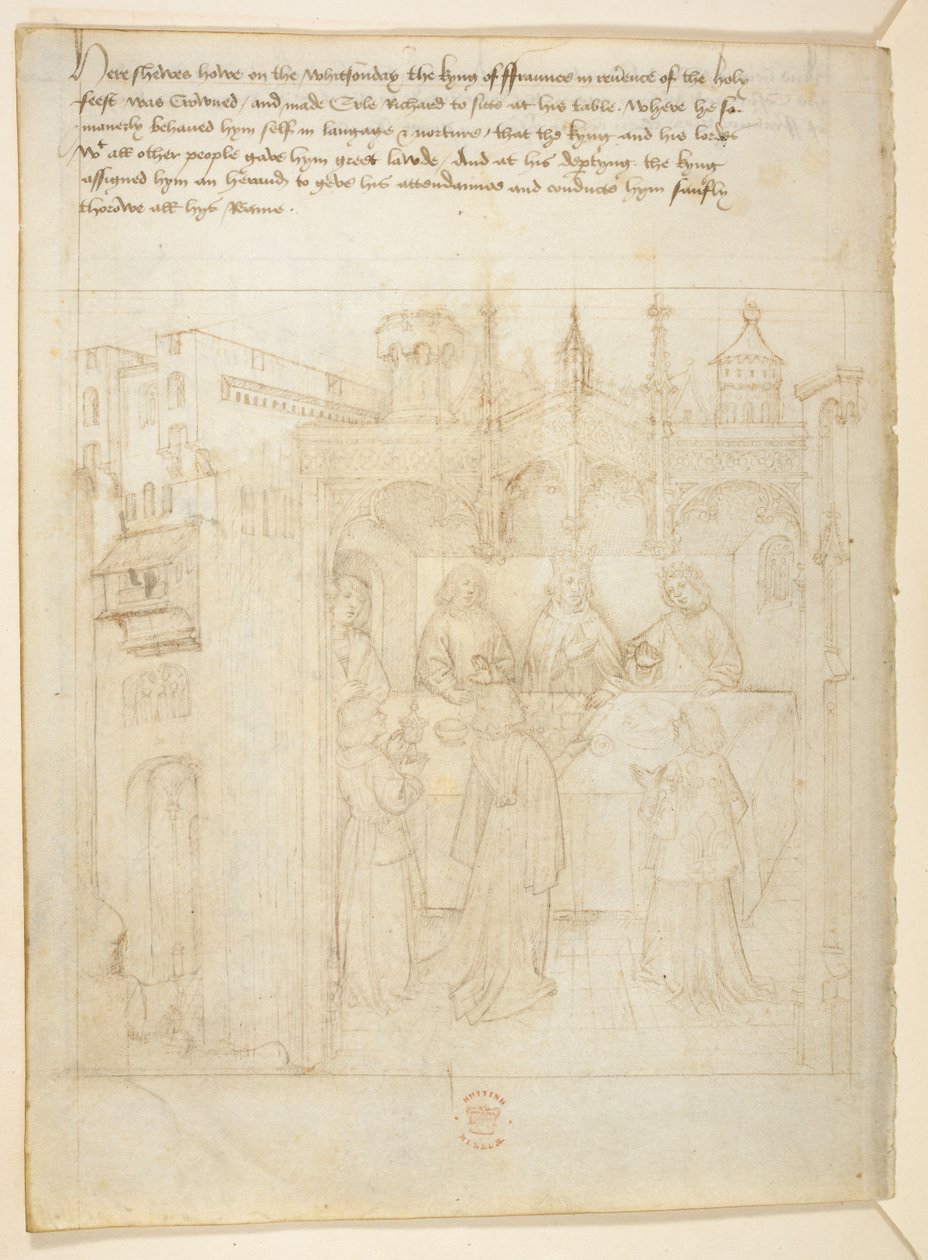 Here shewes howe on the Whitsonday the kyng of ffraunce in reu̾ence of the holy
feest was Crowned / and made Erle Richard to sitte at his table. Where he so
manerly behaued hym self in langage & norture / that the kyng and his lordes
wt all other people gave hym greet lawde / And at his dep̱tyng the kyng
assigned hym an heraud to geve his attendaunce and conducte hym saufly
thorowe all hys Reame .
BRITISH
MUSEUM